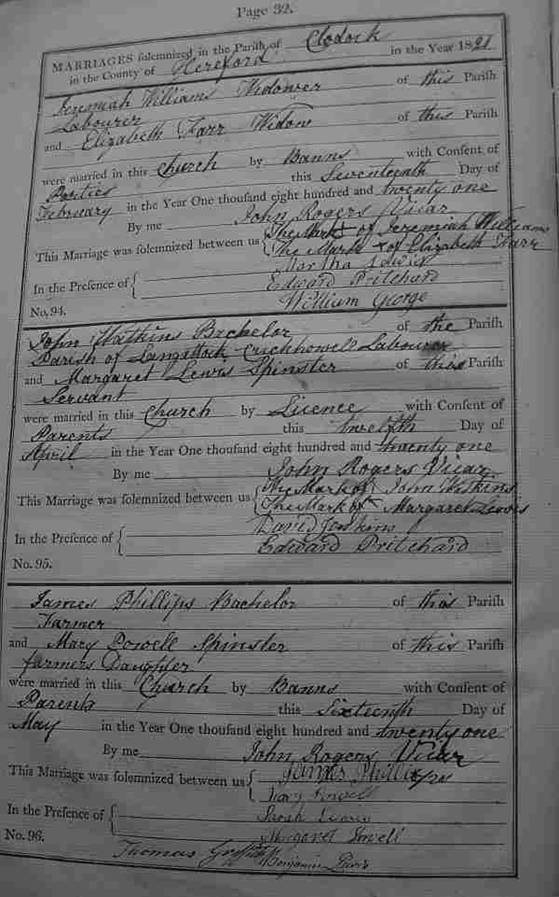 Page 32.
MARRIAGES solemnized in the Parish of Clodock
in the County of Hereford in the Year 1821
Jeremiah Williams Widower of this Parish
Labourer
and Elizabeth Farr Widow of this Parish
were married in this Church by Banns with Consent of
Parties this Seventeenth Day of
February in the Year One thousand eight hundred and twenty one
By me John Rogers Vicar
This Marriage was solemnized between us { The Mark x of Jeremiah Williams
The Mark x of Elizabeth Farr
In the Presence of { Martha Lewis
Edward Pritchard
William George
No. 94.
John Watkins Bachelor of the Parish
Parish of Crickhowell Labourer
and Margaret Lewis Spinster of this Parish
Servant
were married in this Church by Licence with Consent of
Parents this twelfth Day of
April in the Year One thousand eight hundred and twenty one
By me John Rogers Vicar
This Marriage was solemnized between us { The Mark of John Watkins
The Mark of Margaret Lewis
In the Presence of { David Jenkins
Edward Pritchard
No. 95.
James Phillips Bachelor of this Parish
Farmer
and Mary Powell Spinster of this Parish
farmers Daughter
were married in this Church by Banns with Consent of
Parents this Sixteenth Day of
May in the Year One thousand eight hundred and twenty one
By me John Rogers Vicar
This Marriage was solemnized between us { James Phillips
Mary Powell
In the Presence of { Sarah
Margaret Powell
No. 96.
Thomas Griffiths Benjamin Davis